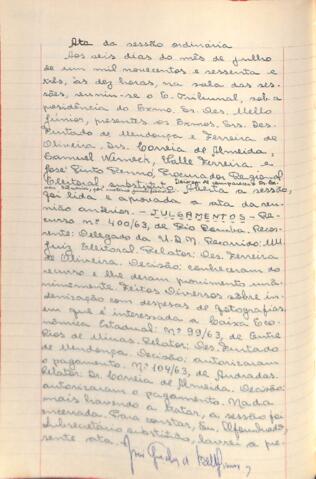 Ata da sessão ordinária
Aos seis dias do mês de julho
de um mil novecentos e sessenta e
três, às dez horas, na sala das ses-
sões, reuniu-se o E. Tribunal, sob a
presidência do Exmo. Sr. Des. Mello
Júnior, presentes os Exmos. Srs. Des.
Furtado de Mendonça e Ferreira de
Oliveira, Drs. Correia de Almeida,
Samuel Werneck, Valle Ferreira e
José Pinto Renno, Procurador Regional
Eleitoral, substituto. Aberta a sessão,
foi lida e aprovada a ata da reu-
nião anterior. - JULGAMENTOS - Re-
curso nº 400/63, de Rio Pomba. Recor-
rente: Delegado da U.D.N. Recorrido: MM.
Juiz Eleitoral. Relator: Des. Ferreira
de Oliveira. Decisão: conheceram do
recurso e lhe deram provimento unâni-
memente. Feitos Diversos sobre in-
denização com despesas de fotografias,
em que é interessada a Caixa Eco-
nômica Estadual: Nº 99/63, de Entre
Rios de Minas. Relator: Des. Furtado
de Mendonça. Decisão: autorizaram
o pagamento. Nº 104/63, de Andradas.
Relator: Dr. Correia de Almeida. Decisão:
autorizaram o pagamento. Nada
mais havendo a tratar, a sessão foi
encerrada. Para constar, Eu,
Subsecretário substituto, lavrei a pre-
sente ata.